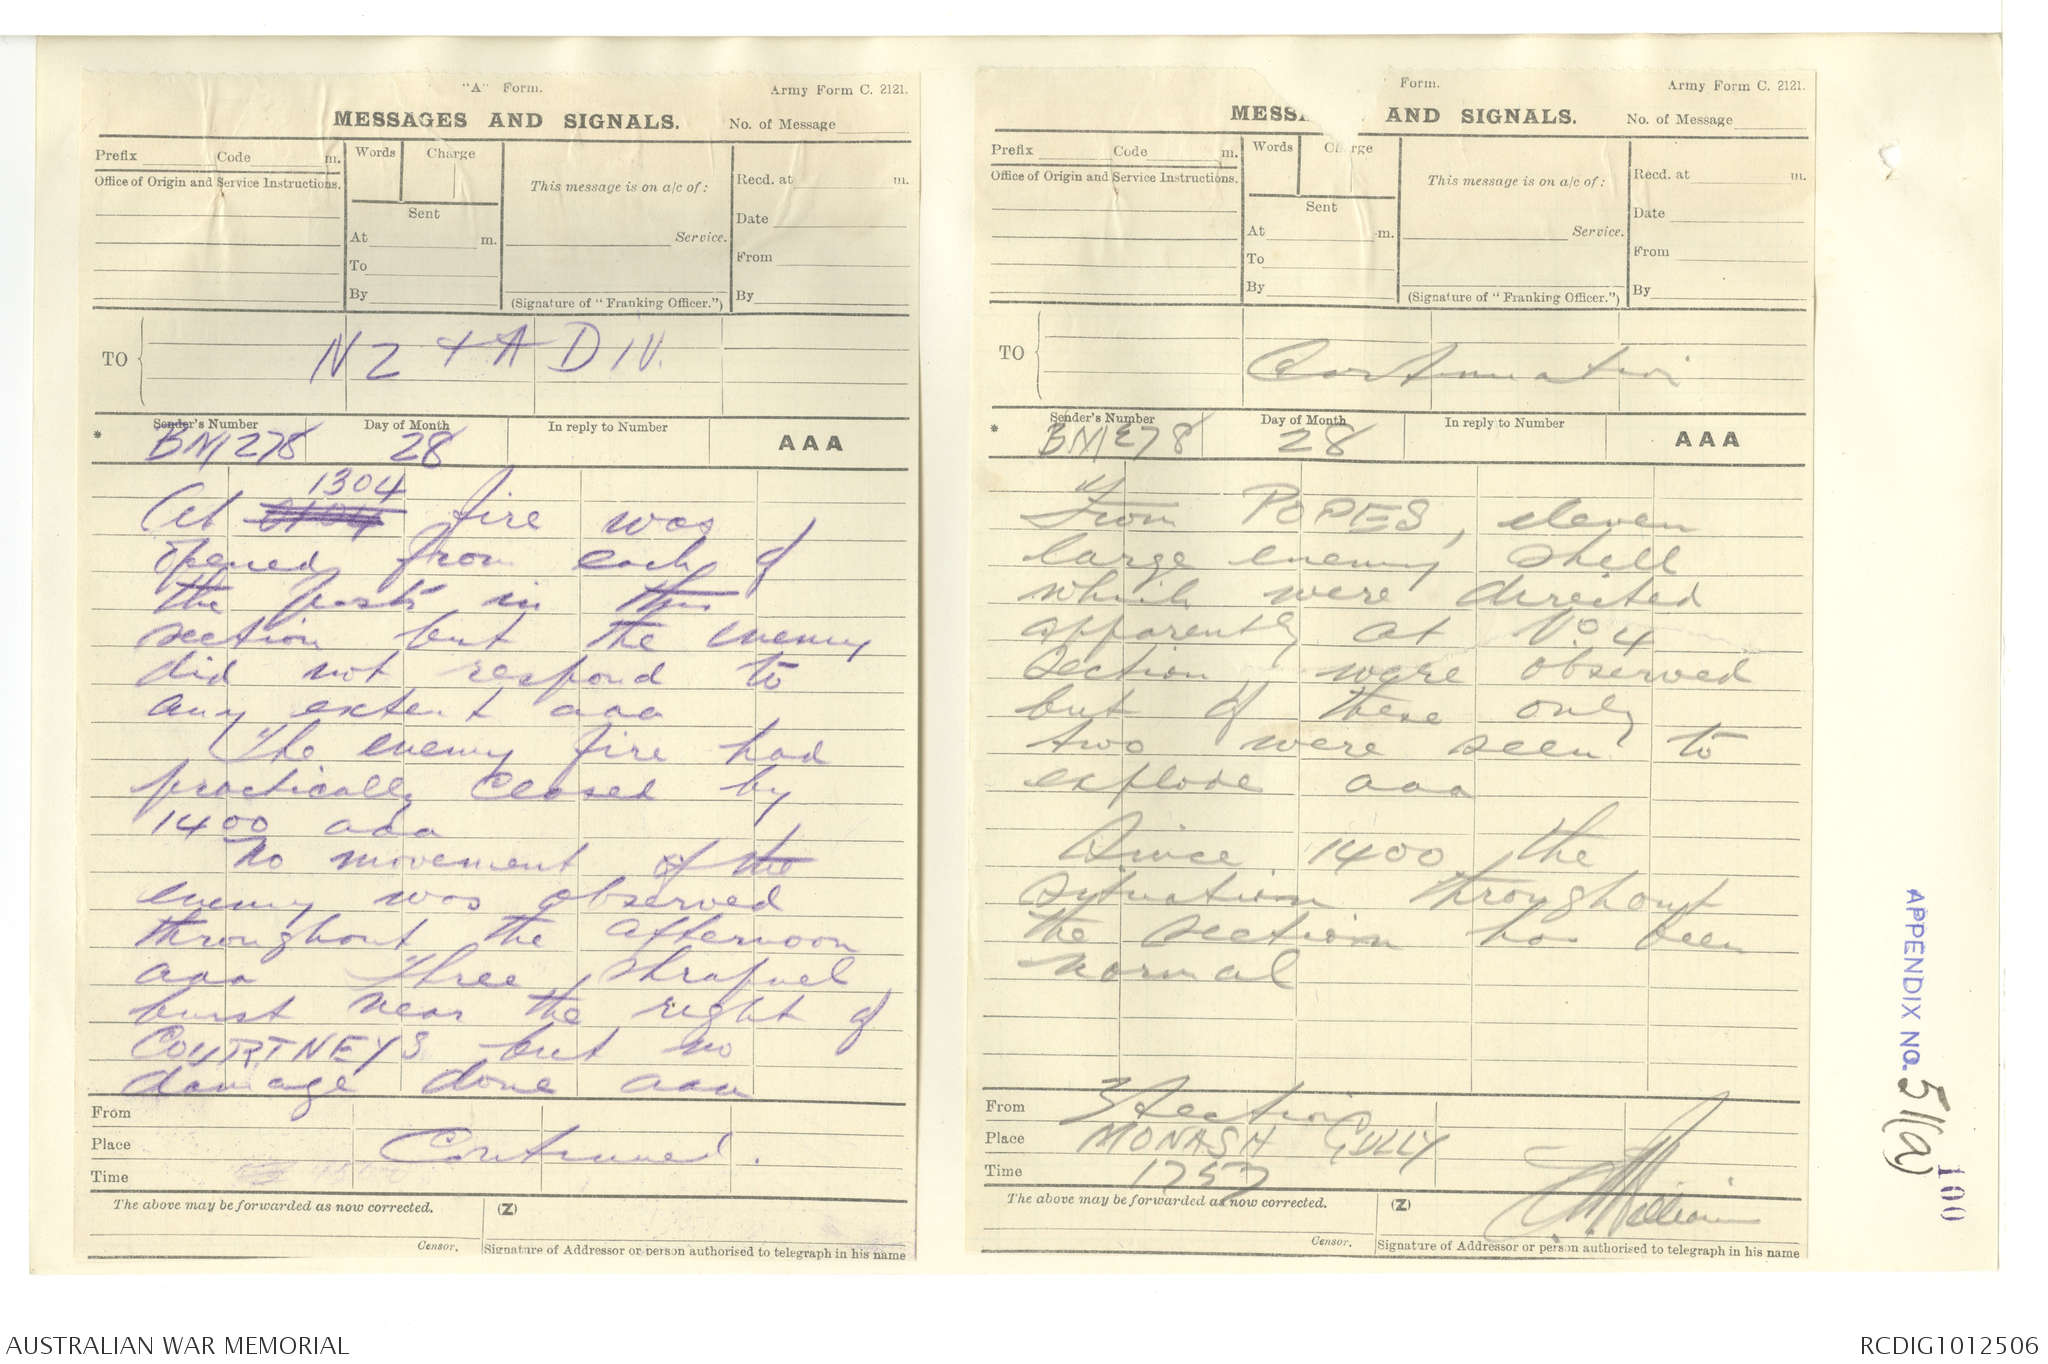 "A" Form.
Army Form C. 2121.
MESSAGES AND SIGNALS.
No. of Message
Prefix Code m.
Words Charge
This message is on a/c of:
Recd. at m.
Office of Origin and Service Instructions.
Sent
Date
At m.
Service.
From
To
By
(Signature of "Franking Officer.")
By
TO
NZ + A DIV.
Sender's Number
Day of Month
In reply to Number
AAA
* BM278
28
1304
At 0104 fire was
opened from each of
the posts in this
section but the enemy
did not respond to
any extent aaa
The enemy fire had
practically ceased by
1400 aaa
No movement of the
enemy was observed
throughout the afternoon
aaa Three shrapnel
burst near the right of
COURTNEYS but no
damage done aaa
From
Place
Continued.
Time
The above may be forwarded as now corrected.
(Z)
Censor.
Signature of Addressor or person authorised to telegraph in his name
Form.
Army Form C. 2121.
MESS AND SIGNALS.
No. of Message
Prefix Code m.
Words Charge
This message is on a/c of:
Recd. at m.
Office of Origin and Service Instructions.
Sent
Date
At m.
Service.
From
To
By
(Signature of "Franking Officer.")
By
TO
Continuation
Sender's Number
Day of Month
In reply to Number
AAA
* BM278
28
From POPES, eleven
large enemy shell
which were directed
apparently at No 4
Section were observed
but of these only
two were seen to
explode aaa
Since 1400 the
situation throughout
the section has been
normal
From 3 Section
Place MONASH GULLY
Time 1757
The above may be forwarded as now corrected.
(Z)
Censor.
Signature of Addressor or person authorised to telegraph in his name
APPENDIX NO. 51(a)
100
AUSTRALIAN WAR MEMORIAL
RCDIG1012506